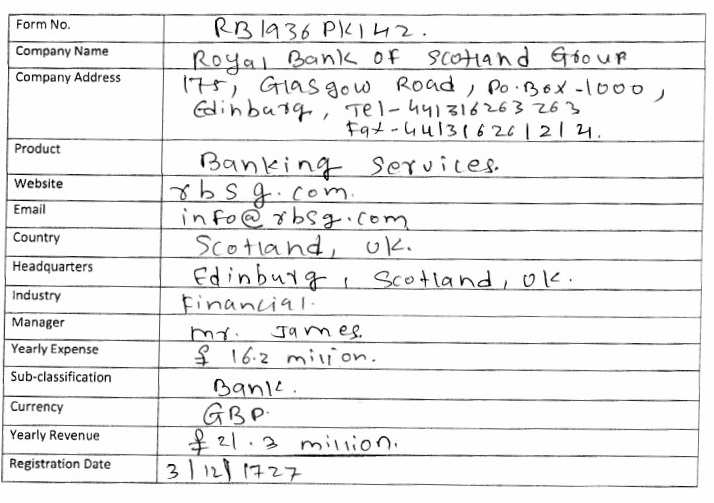 Form No. RB1936PK142.
Company Name Royal Bank of Scotland Group
Company Address 175, Glasgow Road, Po.Box-1000,
Edinburg, Tel-441316263263
Fax-441316261212.
Product Banking Services.
Website rbsg.com.
Email info@rbsg.com
Country Scotland, UK.
Headquarters Edinburg, Scotland, UK.
Industry Financial.
Manager Mr. James.
Yearly Expense £ 16.2 million.
Sub-classification Bank.
Currency GBP.
Yearly Revenue £21.3 million.
Registration Date 3/12/1727